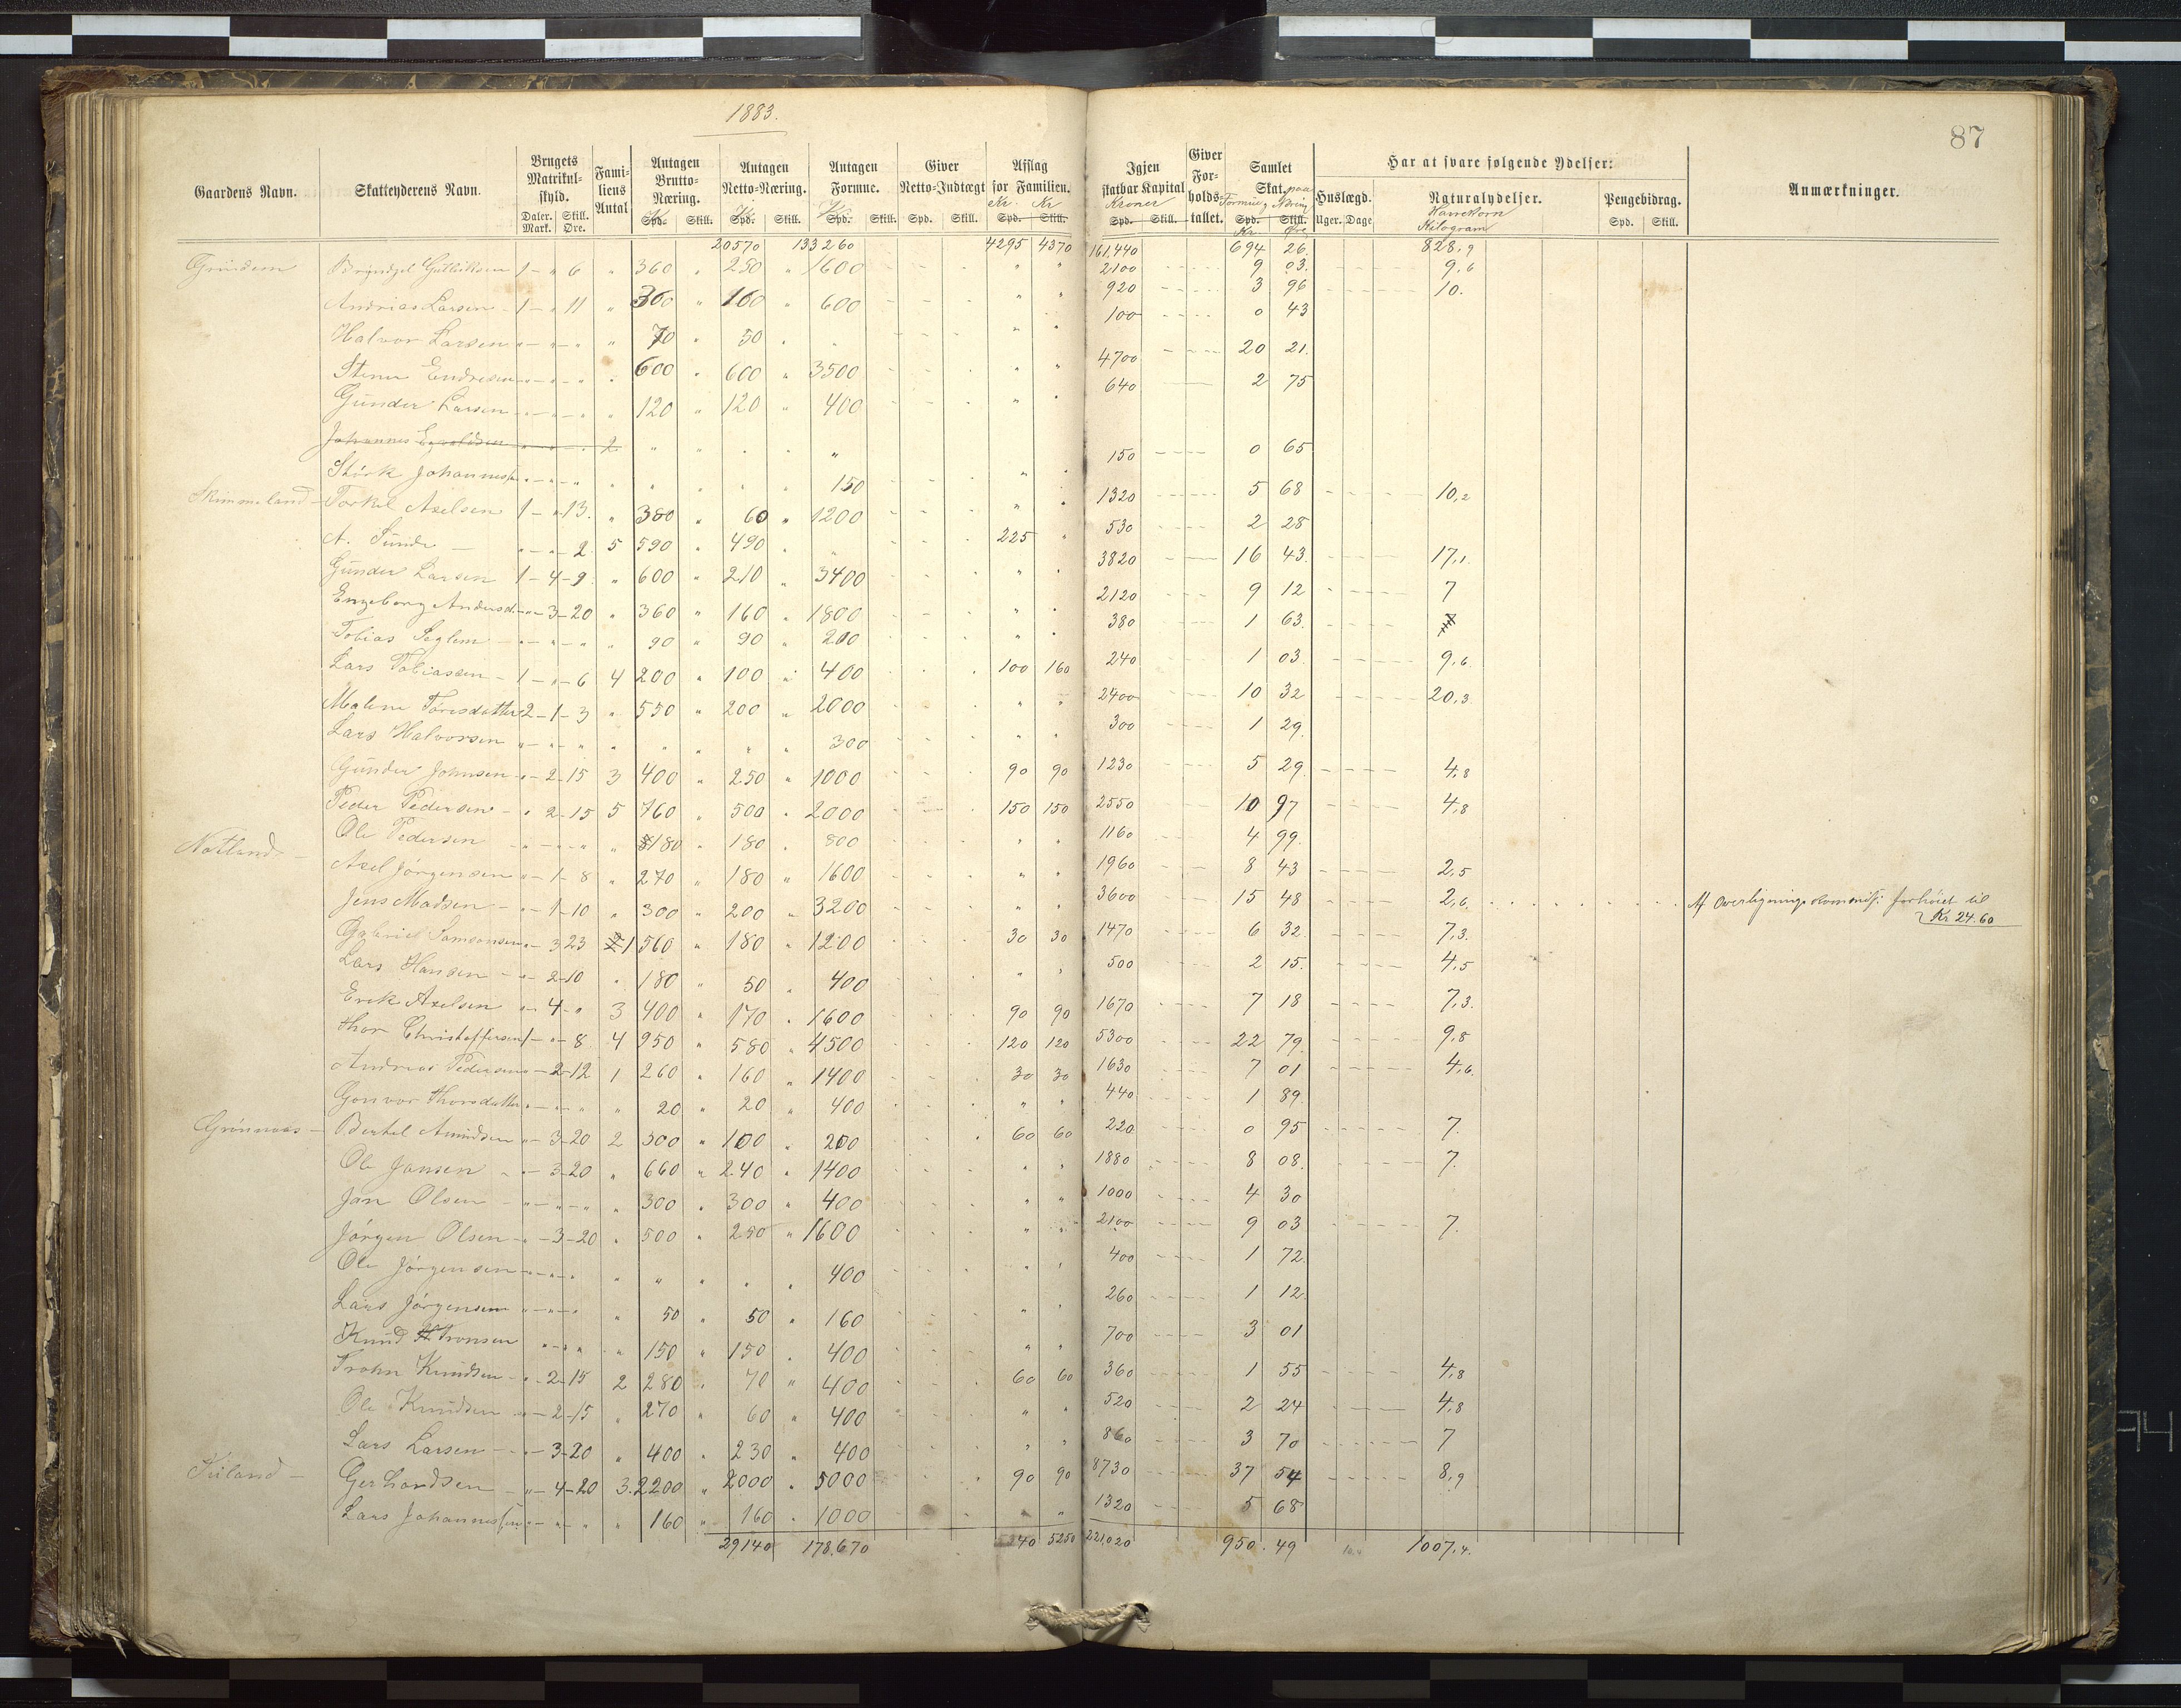 1883.
87
Gaardens Navn. Skatteyderens Navn. Brugets Matrikulskyld. Daler. Mark. Skill. Øre. Familiens Antal Antagen Brutto-Næring. Spd. Skill. Antagen Netto-Næring. Spd. Skill. Antagen Formue. Spd. Skill. Giver Netto-Indtægt Spd. Skill. Afslag for Familien. Kr. Kr Spd. Skill. Igjen skatbar Kapital Kroner Spd. Skill. Giver Forholdstallet. Samlet Skat. paa Formue g Næring Spd. Skill. Kr Øre Har at svare følgende Ydelser: Huslægd. Uger. Dage Naturalydelser. Havrekorn Kilogram Pengebidrag. Spd. Skill. Anmærkninger.
20570 133260 4295 4370 161,440 694 26. 828,9
Grundem Bryngel Gutliksen 1 - " 6 " 360 " 250 " 1600 " " 2100 9 03. 9,6
Andrias Larsen - 1 - " 11 " 300 " 160 " 600 " " 920 3 96 10.
Halvor Larsen " - " - " " 70 " 50 " " " " 100 0 43
Stener Endresen " - " - " " 600 " 600 " 3500 " " 4700 20 21.
Gunder Larsen " - " - " " 120 " 120 " 400 " " 640 2 75
Johannes 2 " " " " "
Stork Johannessen " - " - " " " " " " 150 " " 150 0 65
Skimmeland - Torkel Axelsen 1 - " 13. " 380 " 60 " 1200 " " 1320 5 68 10,2
A. Sunde - " - " - 2. 5 590 " 490 " " 225 " 530 2 28
Gunder Larsen 1 - 4 - 9. " 600 " 210 " 3400 " " 3820 16 43. 17,1.
Engeborg Andersd. " - 3 - 20 " 360 " 160 " 1800 " " 2120 9 12 7
Tobias Seglem " - " - " " 90 " 90 " 200 " " 380 1 63.
Lars Tobiassen - 1 - " - 6 4 200 " 100 " 400 100 160 240 1 03. 9,6.
Malene Toresdatter 2 - 1 - 3 " 550 " 200 " 2000 " " 2400 10 32 20,3.
Lars Halvorsen " - " - " " " " " " 300 " " 300 1 29.
Gunder Johnsen " - 2 - 15 3 400 " 250 " 1000 90 90 1230 5 29. 4,8
Peder Pedersen - " 2 - 15 5 760 " 500 " 2000 150 150 2550 10 97 4,8
Notland - Ole Pedersen " - " - " " 180 " 180 " 800 " " 1160 4 99.
Axel Jørgensen " - 1 - 8 " 270 " 180 " 1600 " " 1960 8 43 2,5
Jens Madsen - " - 1 - 10 " 300 " 200 " 3200 " " 3600 15 48 2,6. Af Overligningskommiss: forhøiet til
Kr 24.60
Gabriel Samsonsen " - 3 23 1 560 " 180 " 1200 30 30 1470 6 32. 7,3.
Lars Hansen - " - 2 - 10 " 180 " 50 " 400 " " 500 2 15. 4,5
Erek Axelsen " - 4 - " 3 400 " 170 " 1600 90 90 1670 7 18 7,3.
Thor Christoffersen 1 - " - 8 4 950 " 580 " 4500 120 120 5300 22 79. 9,8
Andreas Pedersen " - 2 - 12 1 260 " 160 " 1400 30 30 1630 7 01 4,6.
Gonvor Thorsdatter " - " - " " 20 " 20 " 400 " " 440 1 89.
Grønnaas - Bertel Amundsen " - 3 - 20 2 300 " 100 " 200 60 60 220 0 95 7.
Ole Jansen " - 3 - 20 " 660 " 240 " 1400 " " 1880 8 08. 7.
Jan Olsen " - " - " " 300 " 300 " 400 " " 1000 4 30
Jørgen Olsen " - 3 - 20 " 500 " 250 " 1600 " " 2100 9 03 7.
Ole Jørgensen " - " - " " " " " " 400 " " 400 1 72.
Lars Jørgensen " - " - " " 50 " 50 " 160 " " 260 1 12.
Knud Tronsen " - " - " " 150 " 150 " 400 " " 700 3 01
Trohn Knudsen - " - 2 - 15 2 280 " 70 " 400 60 60 360 1 55 4,8
Ole Knudsen " - 2 - 15 " 270 " 60 " 400 " " 520 2 24 4,8
Lars Larsen - " - 3 - 20 " 400 " 230 " 400 " " 860 3 70 7
Tuland - Gerhardsen " - 4 - 20 3. 2200 " 2000 " 5000 90 90 8730 37 54 8,9
Lars Johannessen " - " - " " 160 " 160 " 1000 " " 1320 5 68
29140 178,670 5340 5250 221,020 950.49 1007,4.